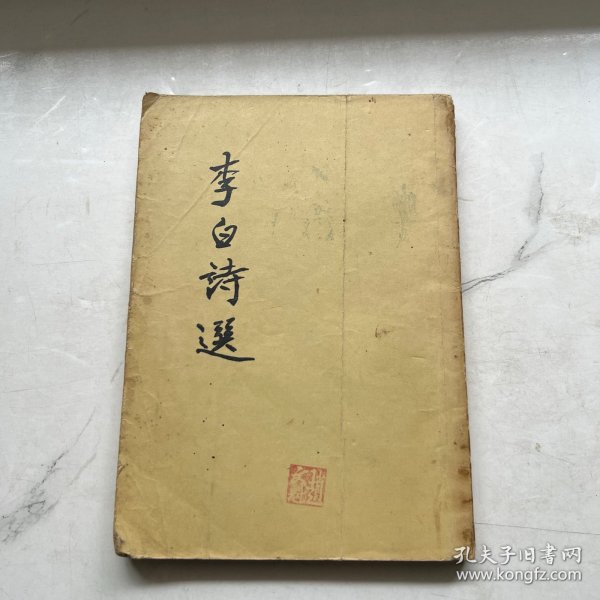 李白詩選
孔夫子旧書网
www.kongfz.com